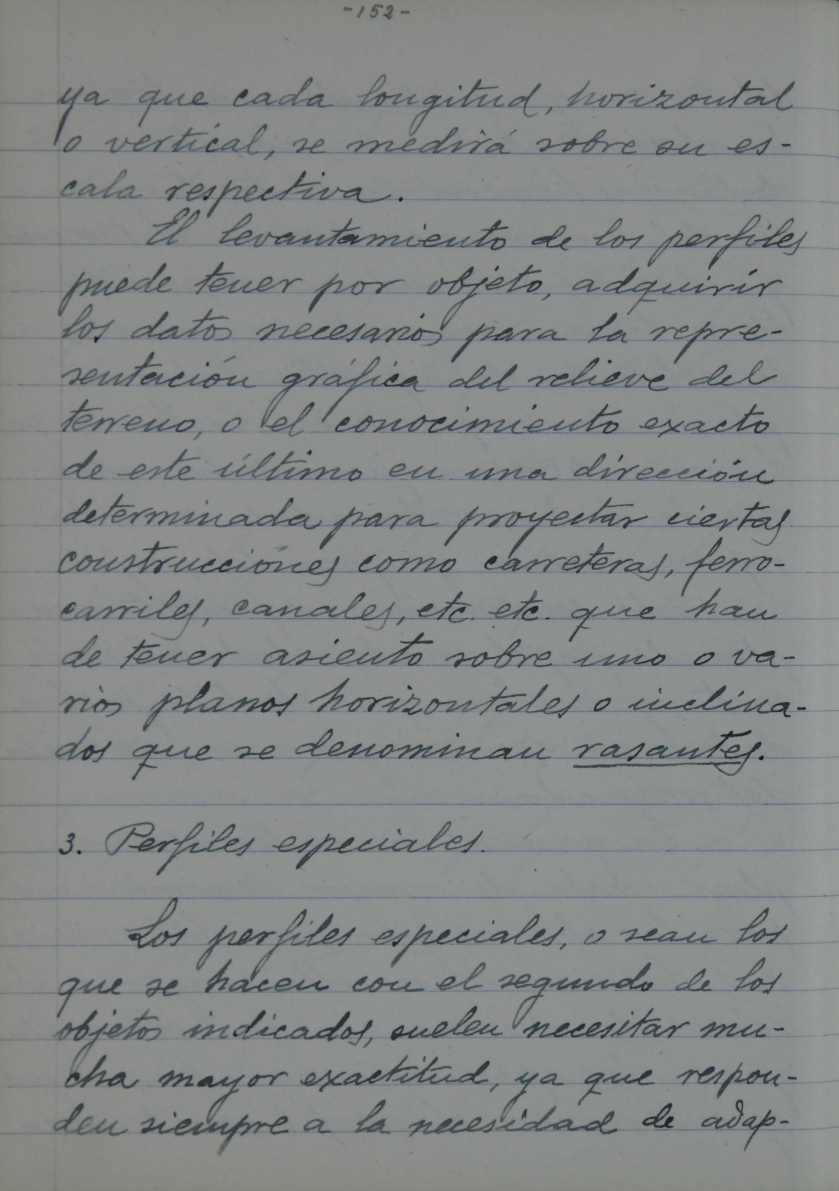 -152-
ya que cada longitud, horizontal
o vertical, se medirá sobre su es-
cala respectiva.
El levantamiento de los perfiles
puede tener por objeto, adquirir
los datos necesarios para la repre-
sentación gráfica del relieve del
terreno, o el conocimiento exacto
de este último en una dirección
determinada para proyectar ciertas
construcciones como carreteras, ferro-
carriles, canales, etc. etc. que han
de tener asiento sobre uno o va-
rios planos horizontales o inclina-
dos que se denominan rasantes.
3. Perfiles especiales.
Los perfiles especiales, o sean los
que se hacen con el segundo de los
objetos indicados, suelen necesitar mu-
cha mayor exactitud, ya que respon-
den siempre a la necesidad de adap-